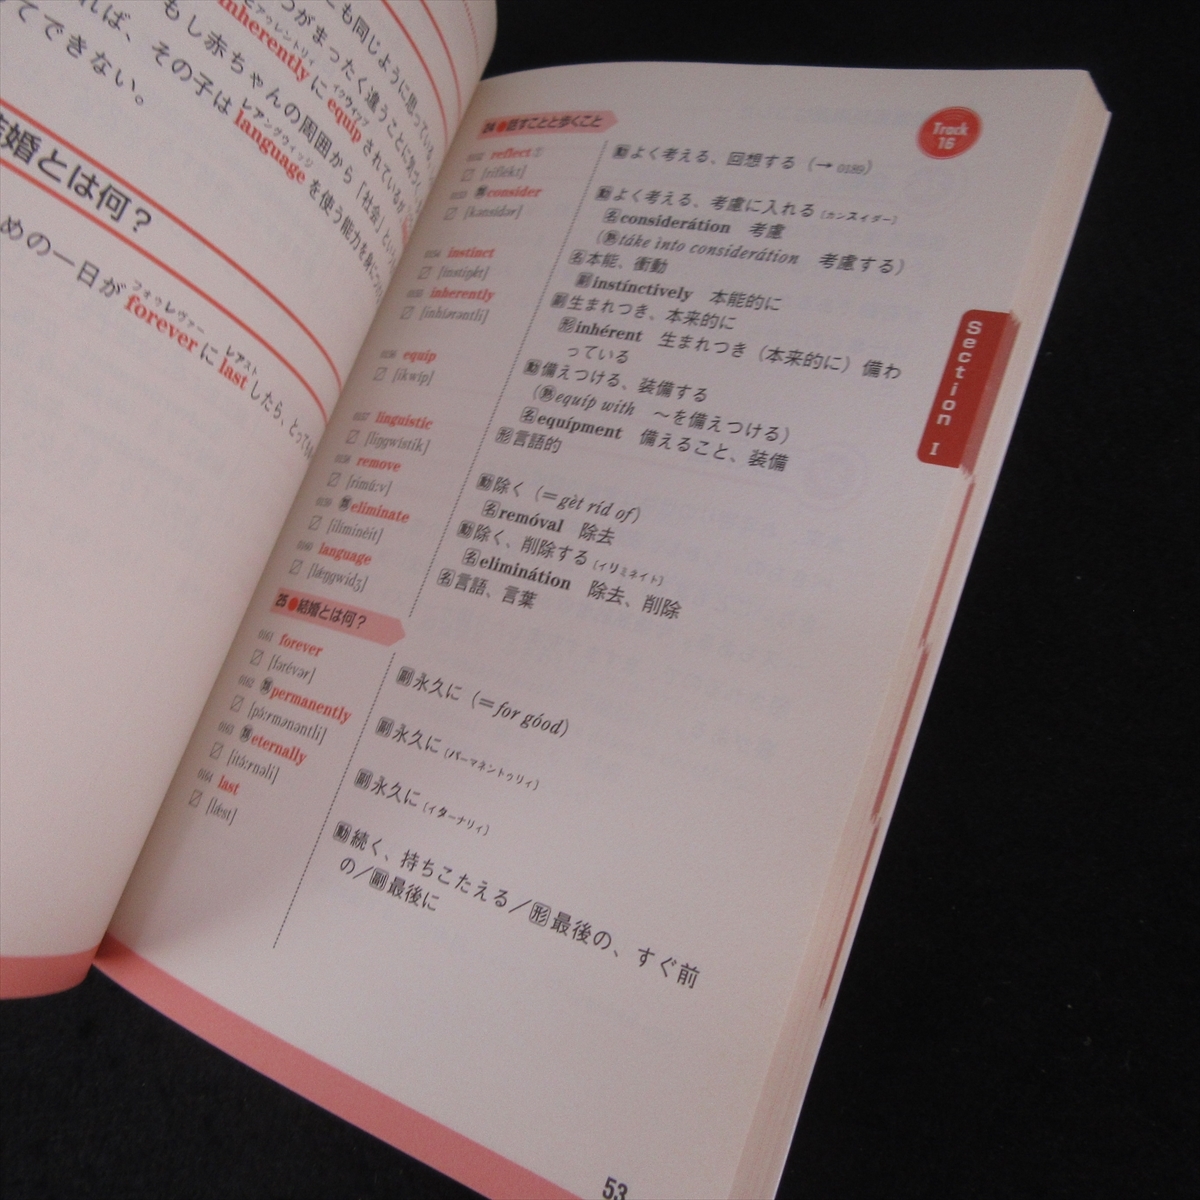 も同じように思っている
つがまったく違うことに気づく
アゥレントリィ イクゥイプ
inherently に equip されているが
もし赤ちゃんの周囲から「社会」という
れば、その子は language を使う能力を身につけ
レアングウィッジ
てできない。
結婚とは何？
めの一日が forever に last したら、とっても
フォゥレヴァー レアスト
24●話すことと歩くこと
Track 16
0152 reflect① [riflékt] 動よく考える、回想する（→ 0189）
0153 類consider [kənsídər] 動よく考える、考慮に入れる（カンスィダー）
名considerátion 考慮
（熟táke ìnto considerátion 考慮する）
0154 instinct [ínstiŋkt] 名本能、衝動
副instínctively 本能的に
0155 inherently [inhíərəntli] 副生まれつき、本来的に
形inhérent 生まれつき（本来的に）備わ
っている
0156 equip [ikwíp] 動備えつける、装備する
（熟equíp with ～を備えつける）
名equípment 備えること、装備
0157 linguistic [liŋgwístik] 形言語的
0158 remove [rimúːv] 動除く（＝gèt ríd of）
名remóval 除去
0159 類eliminate [ilíminèit] 動除く、削除する（イリミネイト）
名eliminátion 除去、削除
0160 language [lǽŋgwidʒ] 名言語、言葉
25●結婚とは何？
0161 forever [fərévər] 副永久に（＝for góod）
0162 類permanently [pə́ːrmənəntli] 副永久に（パーマネントゥリィ）
0163 類eternally [itə́ːrnəli] 副永久に（イターナリィ）
0164 last [lǽst] 動続く、持ちこたえる／形最後の、すぐ前
の／副最後に
Section I
53